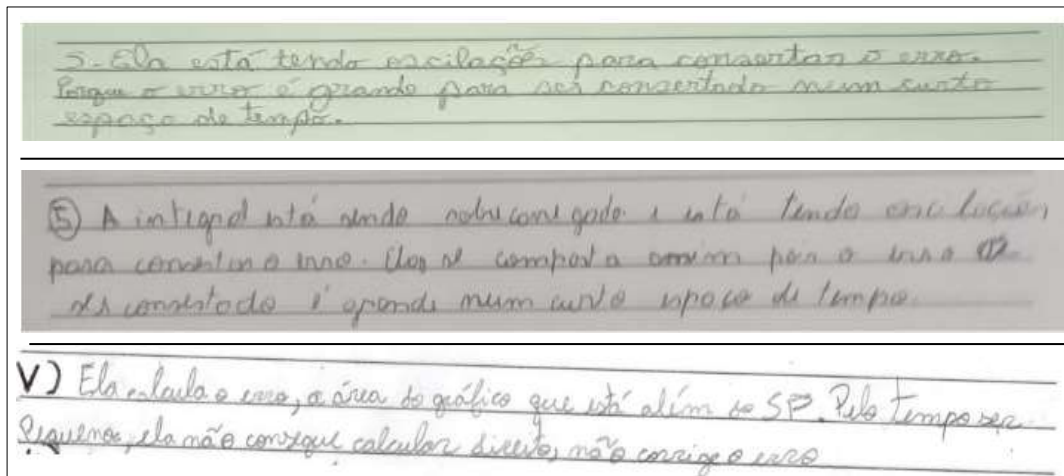 5-Ela está tendo oscilações para consertar o erro.
Porque o erro é grande para ser consertado num curto
espaço de tempo.
⑤ A integral está sendo sobrecarregada e está tendo oscilações
para consertar o erro. Ela se comporta assim pois o erro a
ser consertado é grande num curto espaço de tempo.
V) Ela calcula o erro, a área do gráfico que está além do SP. Pelo tempo ser
pequeno, ela não consegue calcular direito, não corrige o erro